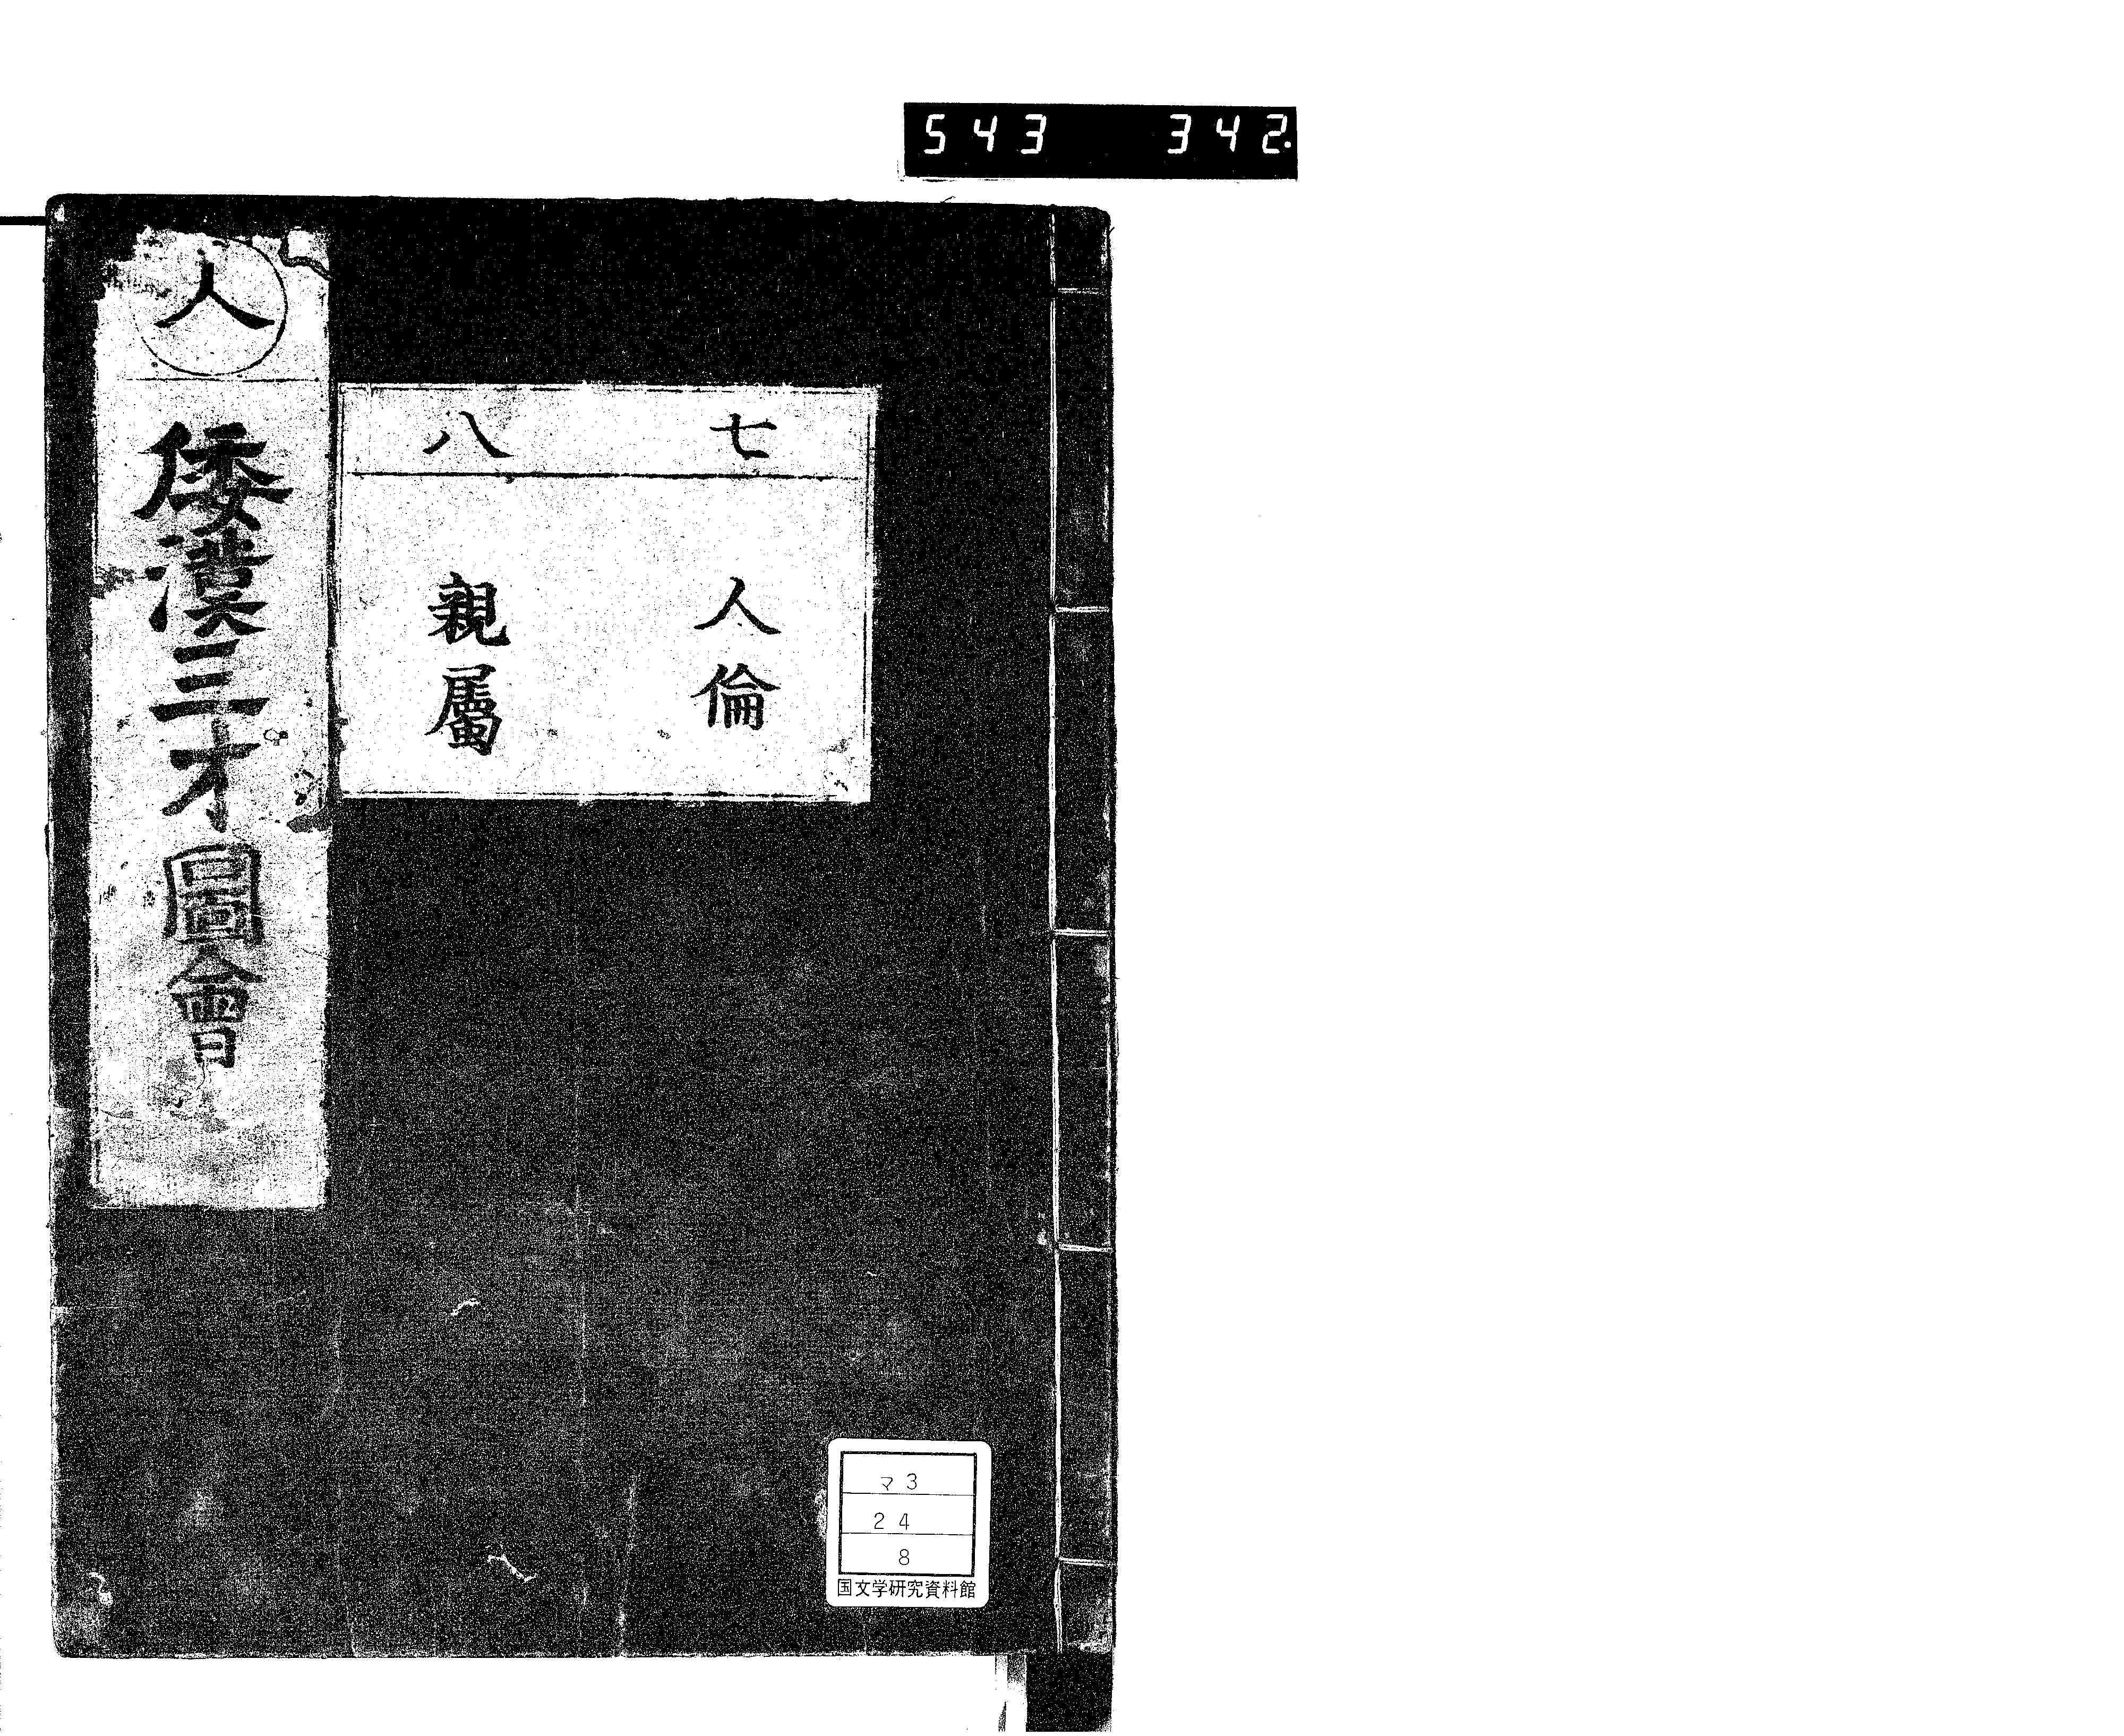 543 342.
人
倭漢三才圖會
七
人倫
八
親屬
マ3
24
8
国文学研究資料館